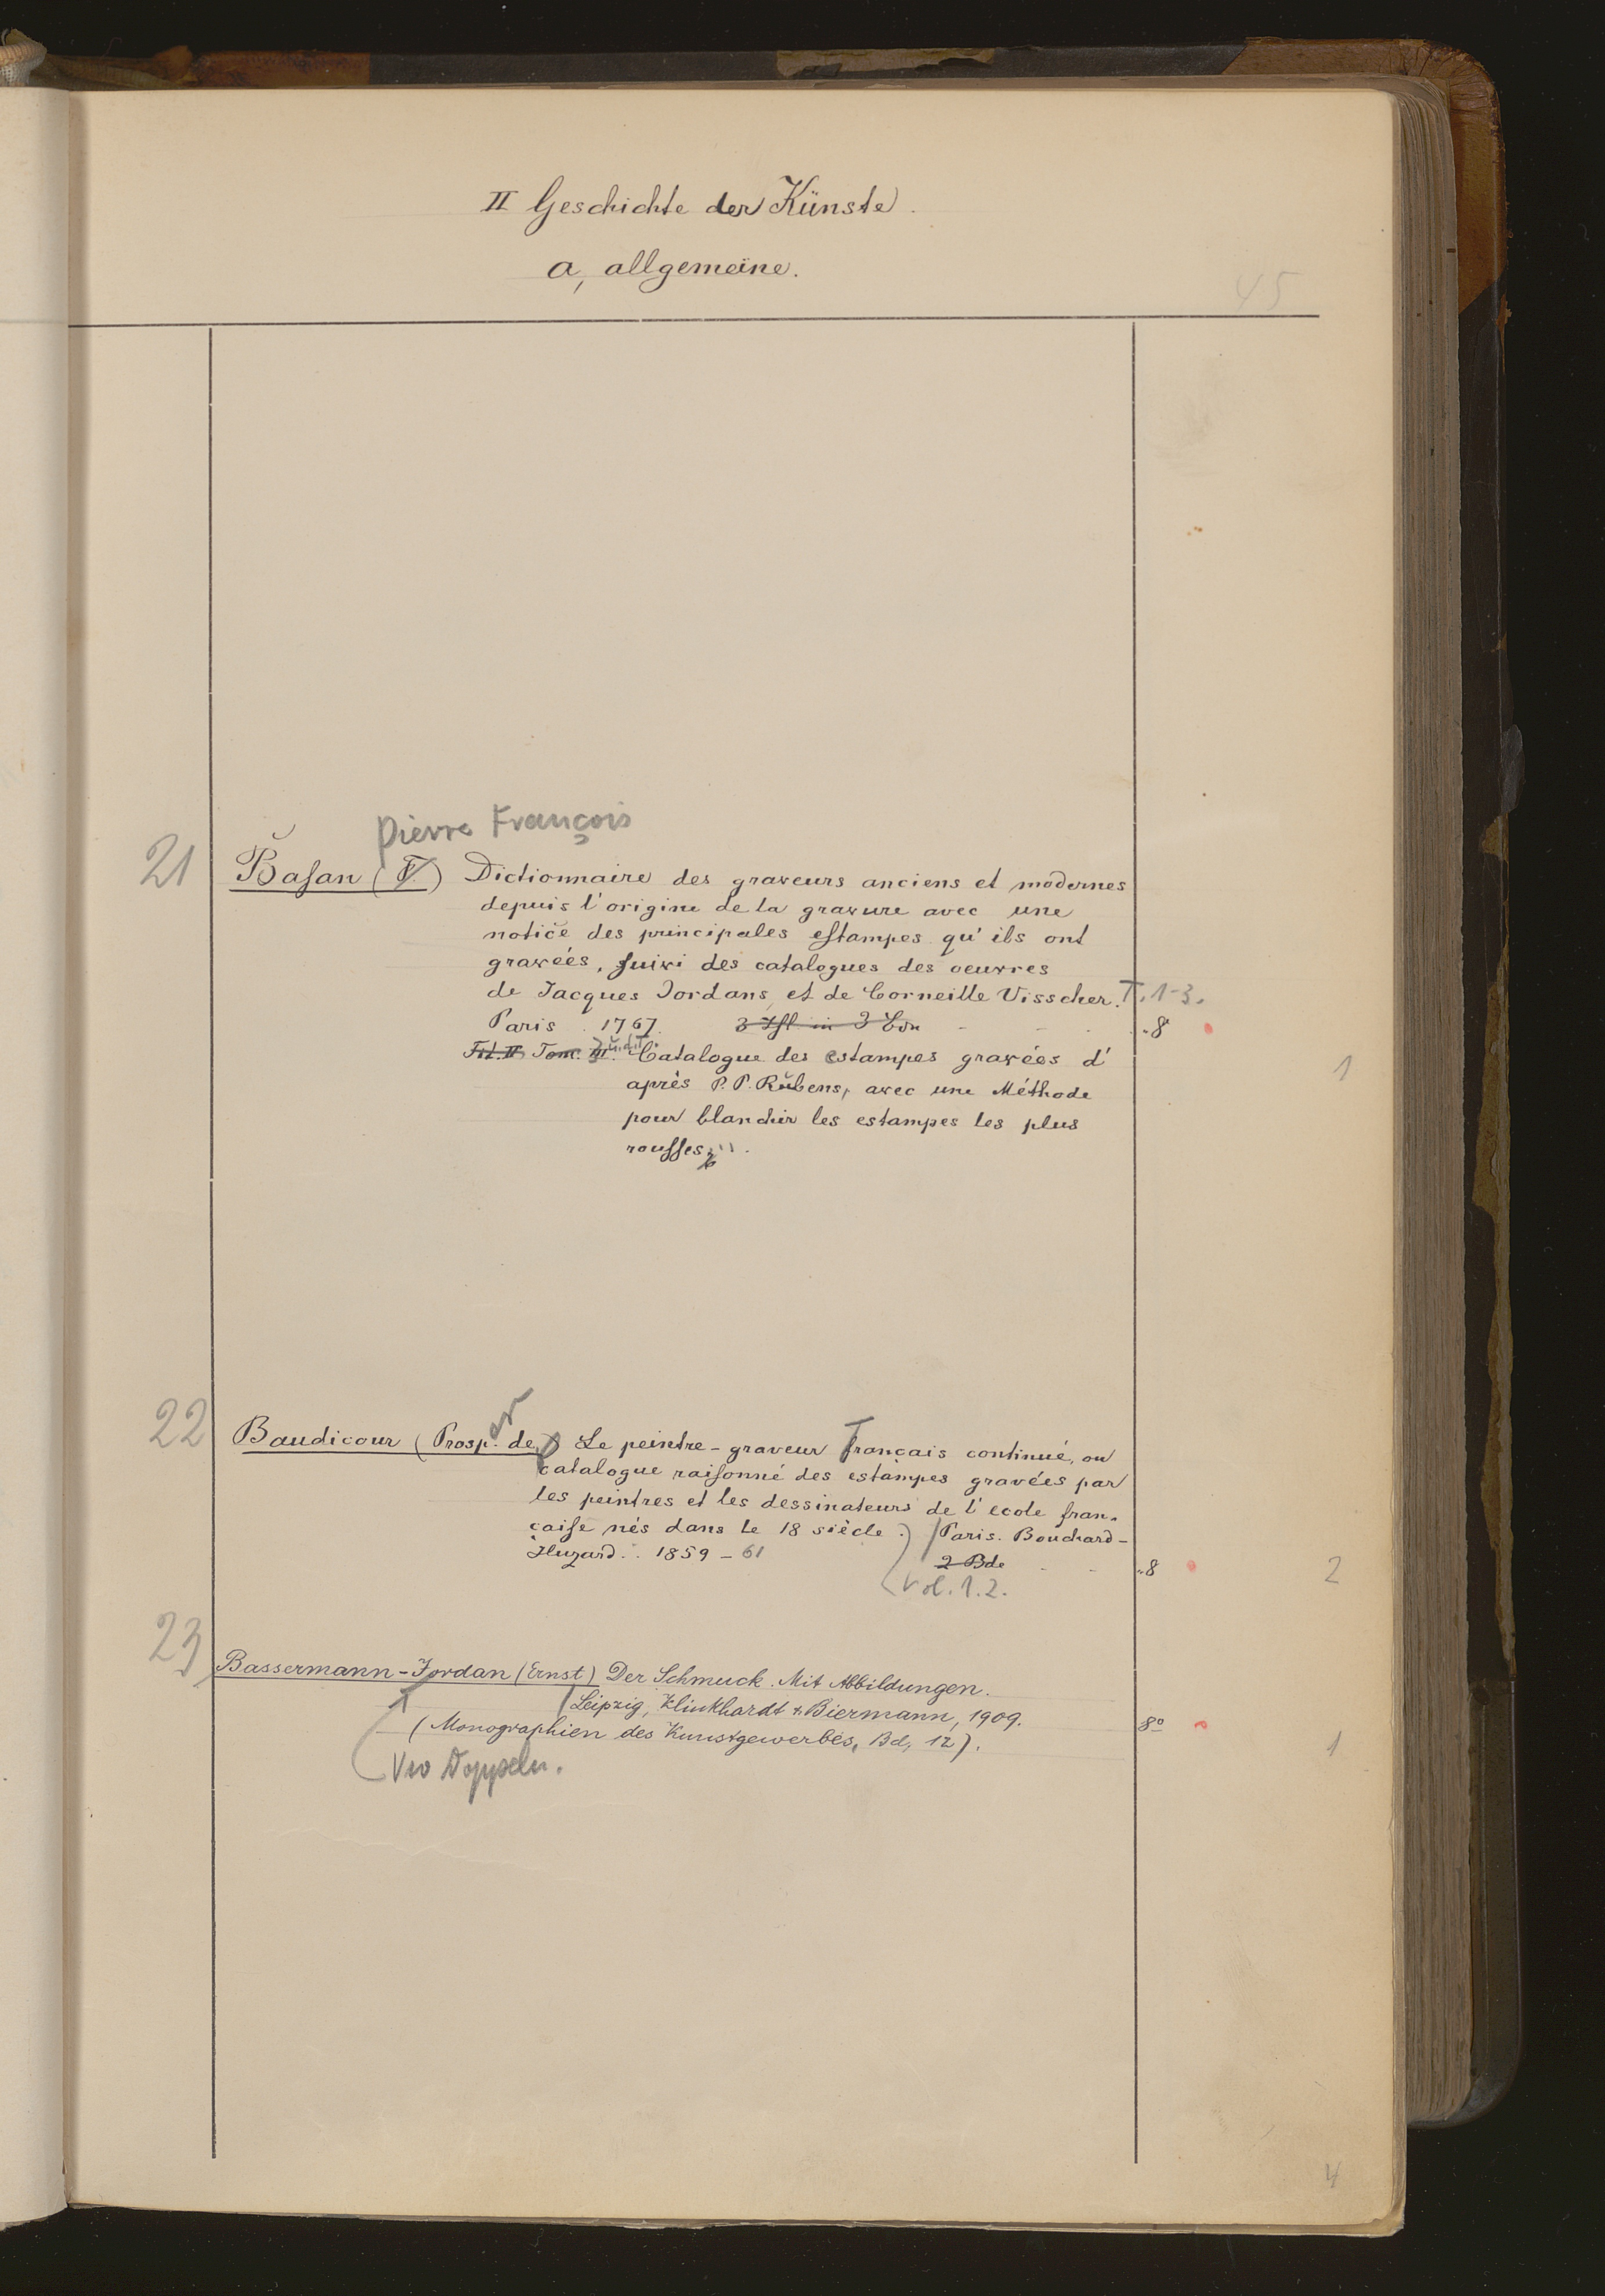 II Geschichte der Künste.
a, allgemeine.
45
Pierre François
21 Baſan (F.) Dictionnaire des graveurs anciens et modernes
depuis l'origine de la gravure avec une
notice des principales eſtampes qu'ils ont
gravées, ſuivi des catalogues des oeuvres
de Jacques Jordans, et de Corneille Visscher. T. 1-3.
Paris 1767. 3 in 3 8°
Tom. III. Catalogue des estampes gravées d'
après P. P. Rubens, avec une Méthode
1
pour blanchir les estampes les plus
rouſſes
22 Baudicour (Prosp. de) Le peintre-graveur français continué, ou
catalogue raiſonné des estampes gravées par
les peintres et les dessinateurs de l'ecole fran-
çaiſe nés dans le 18 siècle.) Paris. Bouchard-
Huzard. 1859-61 2 Bde 8 2
Vol. 1.2.
23 Bassermann-Jordan (Ernst) Der Schmuck. Mit Abbildungen.
Leipzig, Klinkhardt & Biermann, 1909.
(Monographien des Kunstgewerbes, Bd, 12). 8° 1
4